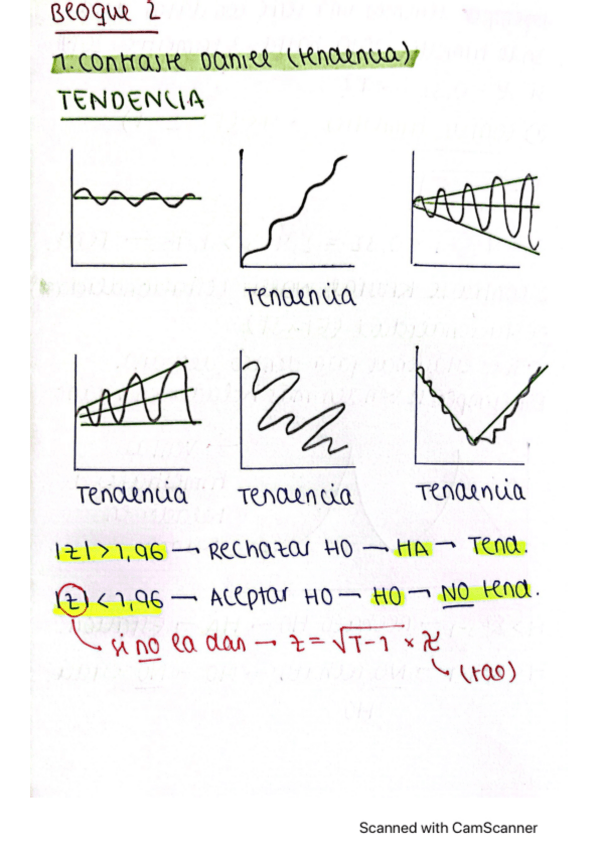 Bloque 2
1. Contraste Daniel (tendencia)
TENDENCIA
Tendencia
Tendencia Tendencia Tendencia
|z| > 1,96 → Rechazar H0 → HA → Tend.
|z| < 1,96 → Aceptar H0 → H0 → NO tend.
si no la dan → z = √T-1 × τ
(tao)
Scanned with CamScanner